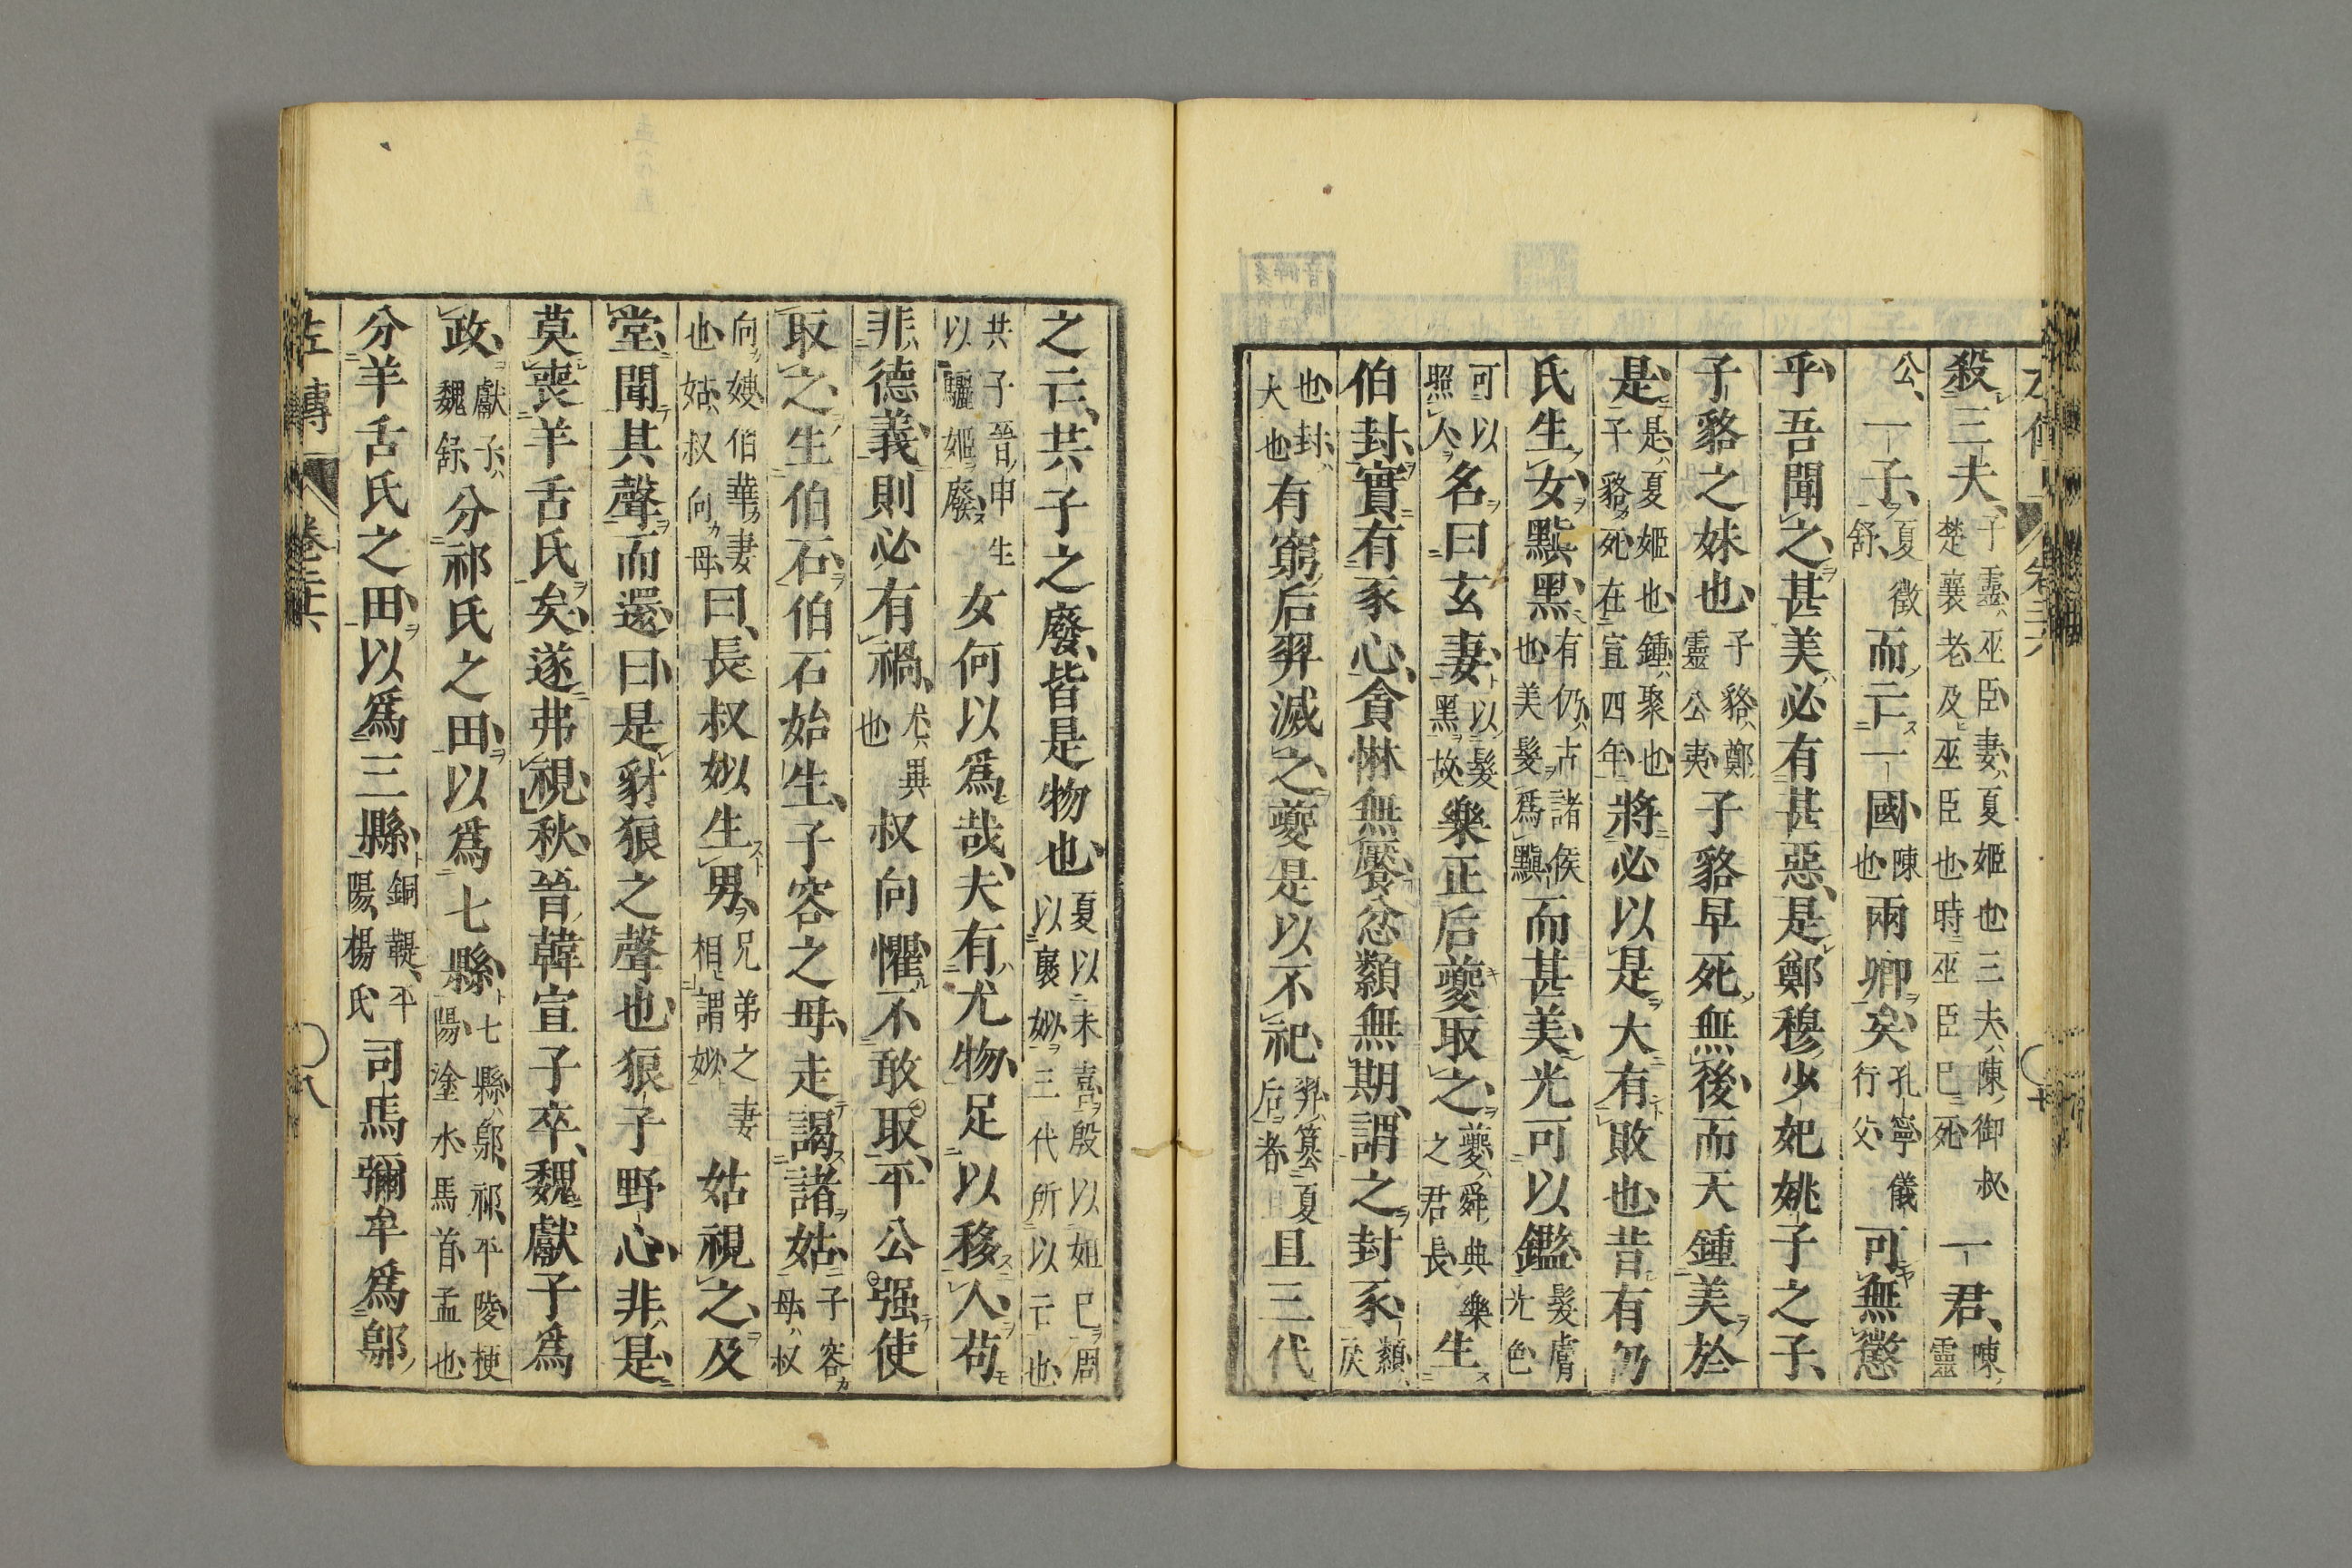 殺三夫子靈巫臣妻夏姬也三夫陳御叔楚襄老及巫臣也時巫臣已死一君陳靈
公一子夏徵舒而亡一國陳也兩卿矣孔寧儀行父可無懲
乎吾聞之甚美必有甚惡是鄭穆少妃姚子之子
子貉之妹也子貉鄭靈公夷子貉早死無後而天鍾美於
是是夏姬也鍾聚也子貉死在宣四年將必以是大有敗也昔有仍
氏生女黰黑有仍古諸侯也美髮爲黰而甚美光可以鑑髮膚光色
可以照人名曰玄妻以髮黑故樂正后夔取之夔舜典樂之君長生
伯封實有豕心貪惏無饜忿纇無期謂之封豕纇戾
也封大也有窮后羿滅之夔是以不祀羿篡夏后者且三代
之亡共子之廢皆是物也夏以末喜殷以妲己周以褒姒三代所以亡也
共子晉申生以驪姬廢女何以爲哉夫有尤物足以移人苟
非德義則必有禍尤異也叔向懼不敢取平公强使
取之生伯石伯石始生子容之母走謁諸姑子容母叔
向嫂伯華妻也姑叔向母曰長叔姒生男兄弟之妻相謂姒姑視之及
堂聞其聲而還曰是豺狼之聲也狼子野心非是
莫喪羊舌氏矣遂弗視秋晉韓宣子卒魏獻子爲
政獻子魏舒分祁氏之田以爲七縣七縣鄔祁平陵梗陽塗水馬首盂也
分羊舌氏之田以爲三縣銅鞮平陽楊氏司馬彌牟爲鄔
左傳 卷二十六 八